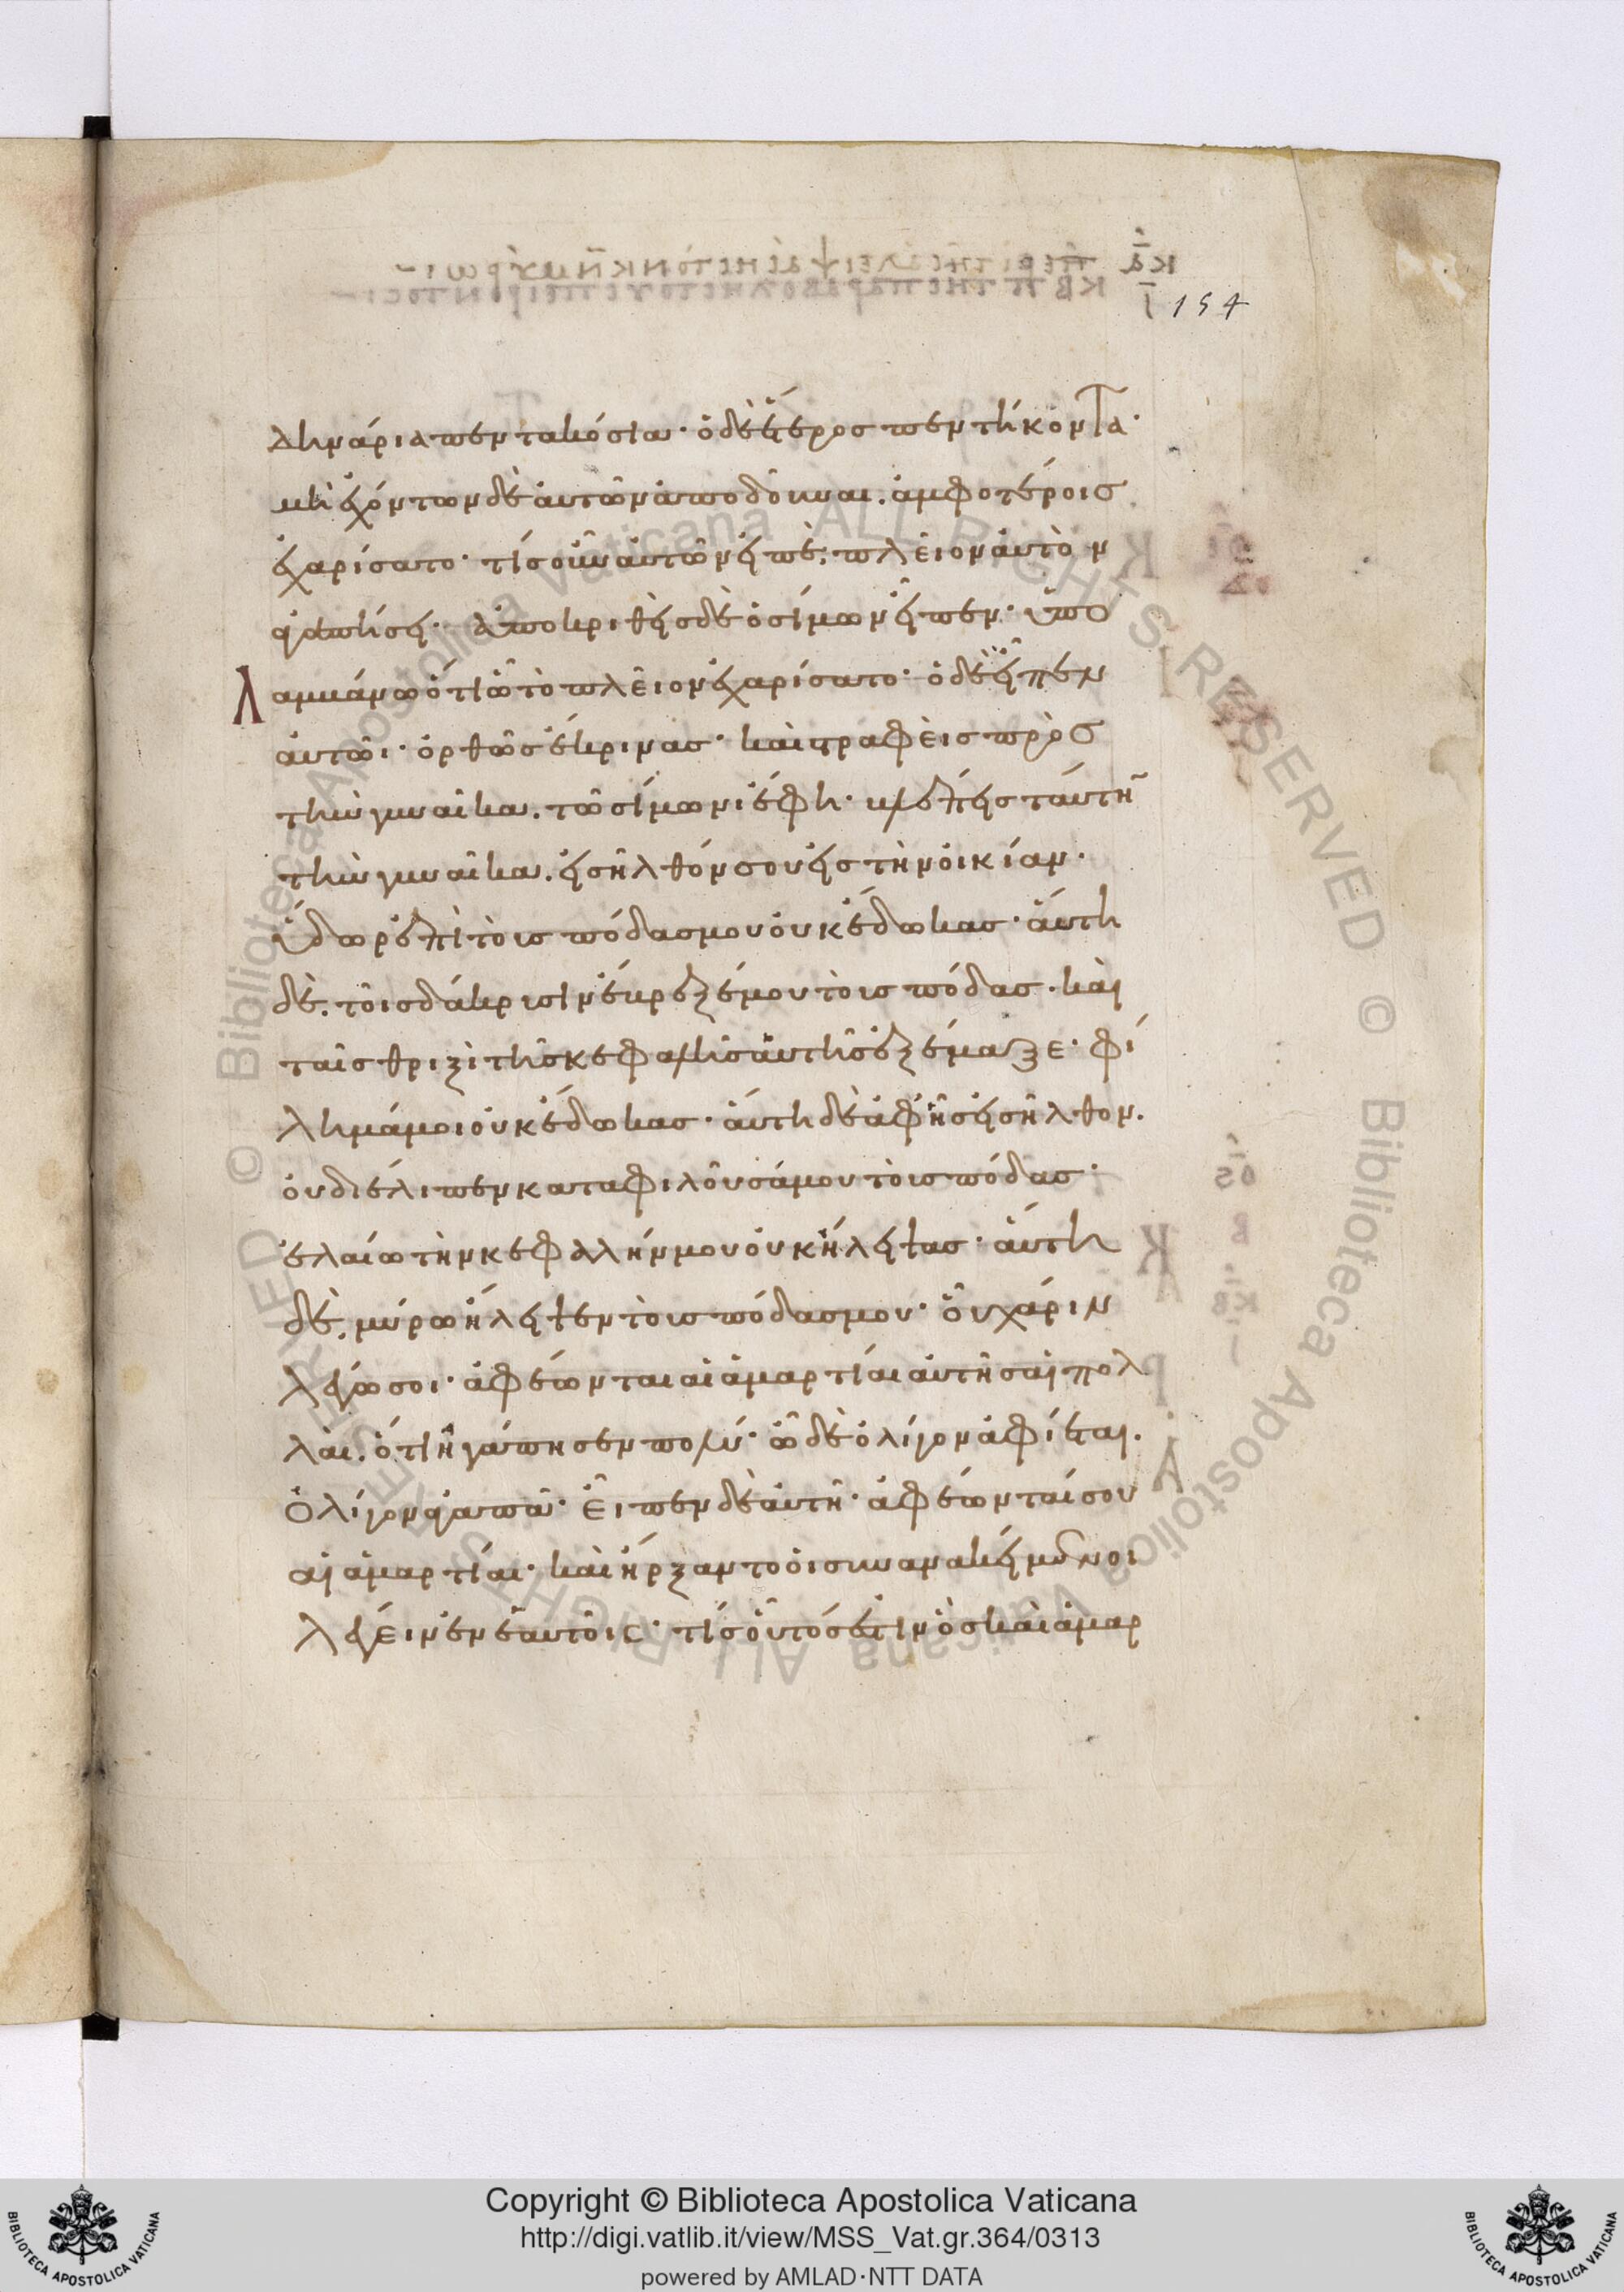 154
δηνάρια πεντακόσια· ὁ δὲ ἕτερος πεντήκοντα·
μὴ ἐχόντων δὲ ἀυτῶν ἀποδοῦναι. ἀμφοτέροις
ἐχαρίσατο· τίς οὖν ἀυτῶν εἰπὲ; πλεῖον ἀυτὸν
ἀγαπήσει· ἀποκριθεὶς δὲ ὁ σίμων εἶπεν· ὑπο
λαμβάνω ὅτι ὧ τὸ πλεῖον ἐχαρίσατο· ὁ δὲ εἶπεν
ἀυτῶι· ὀρθῶς ἔκρινας· καὶ στραφεὶς πρὸς
τὴν γυναῖκα. τῶ σίμωνι ἔφη· βλέπεις ταύτην
τὴν γυναῖκα. εἰσῆλθόν σου εἰς τὴν ὀικίαν·
ὕδωρ ἐπὶ τοὺς πόδας μου ὀυκ ἔδωκας· ἀύτη
δὲ. τοῖς δάκρυσιν ἔβρεξέ μου τοὺς πόδας. καὶ
ταῖς θριξὶ τῆς κεφαλῆς ἀυτῆς ἐξέμαξε· φί
λημά μοι ὀυκ ἔδωκας· ἀύτη δὲ ἀφ' ἧς εἰσῆλθον.
ὀυ διέλιπεν καταφιλοῦσά μου τοὺς πόδας·
ἐλαίω τὴν κεφαλήν μου ὀυκ ἤλειψας· ἀύτη
δὲ. μύρω ἤλειψεν τοὺς πόδας μου· ὅυ χάριν
λέγω σοι· ἀφέωνται αἱ ἁμαρτίαι ἀυτῆς αἱ πολ
λαὶ. ὅτι ἠγάπησεν πολύ· ὧ δὲ ὀλίγον ἀφίεται.
ὀλίγον ἀγαπᾶ· εἶπεν δὲ ἀυτῆ· ἀφέωνταί σου
αἱ ἁμαρτίαι· καὶ ἤρξαντο ὁι συνανακείμενοι
λέγειν ἐν ἑαυτοῖς· τίς οὗτός ἐστιν ὃς καὶ ἁμαρ
Copyright © Biblioteca Apostolica Vaticana
http://digi.vatlib.it/view/MSS_Vat.gr.364/0313
powered by AMLAD·NTT DATA
BIBLIOTECA APOSTOLICA VATICANA
BIBLIOTECA APOSTOLICA VATICANA